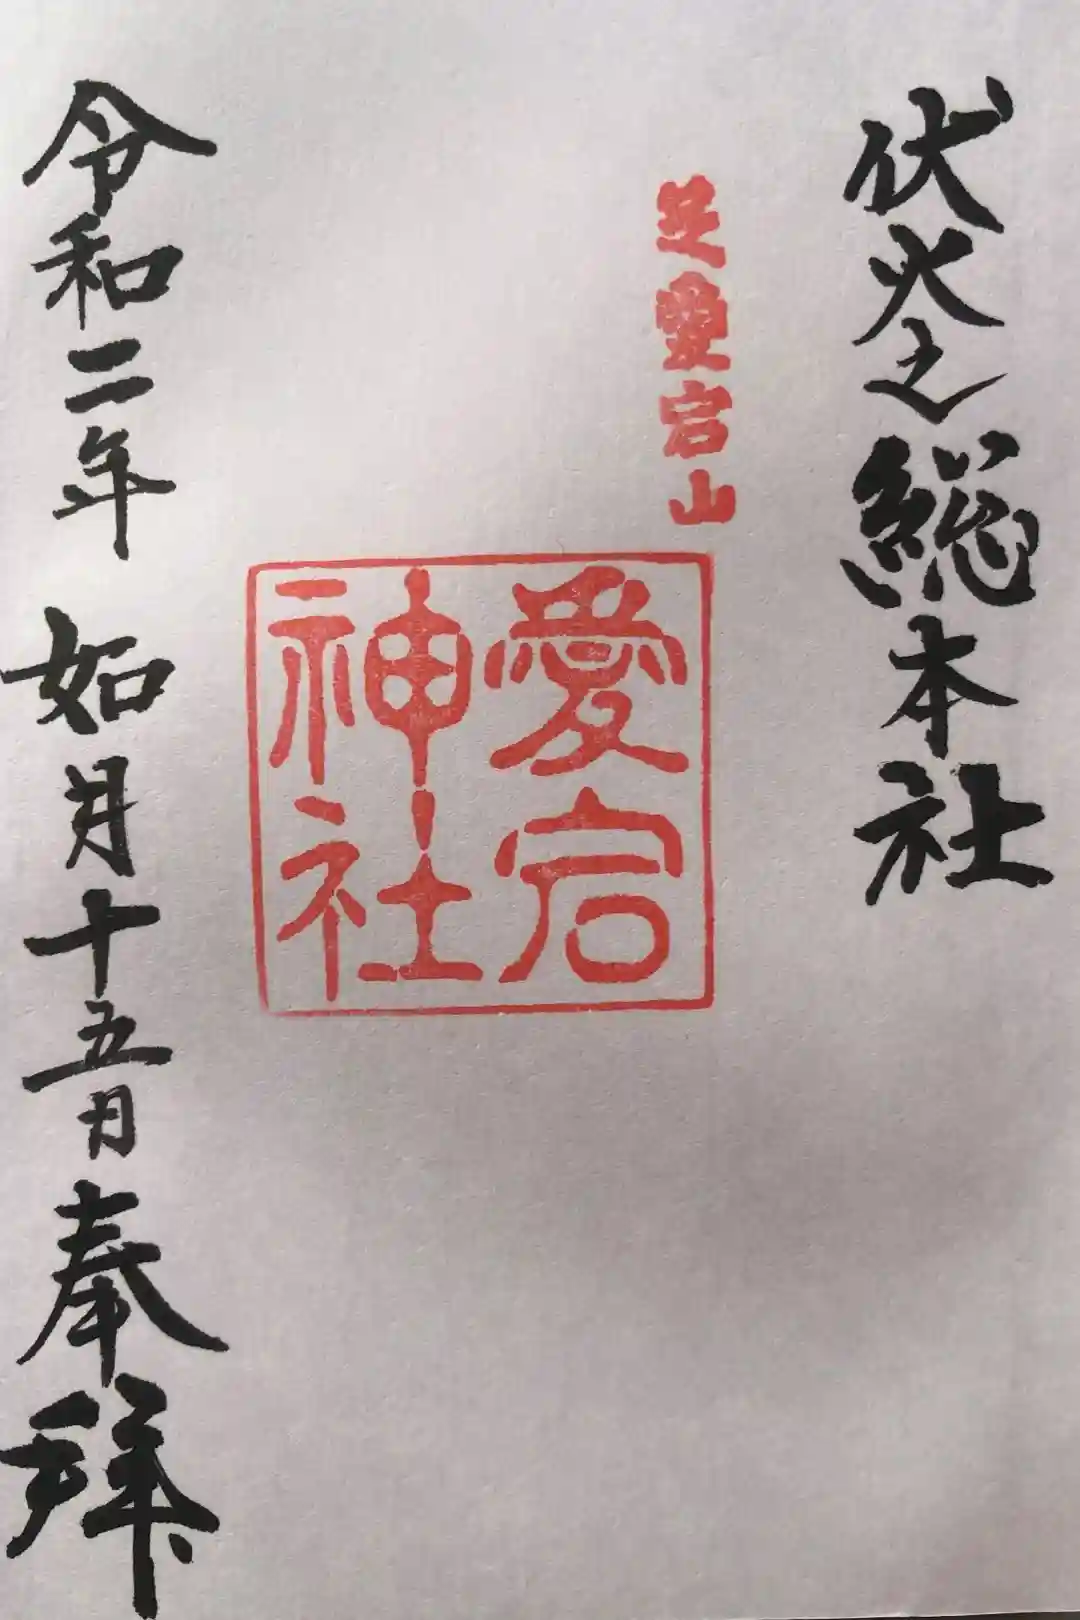 伏火之総本社
芝愛宕山
愛宕
神社
令和二年 如月十五日 奉拝